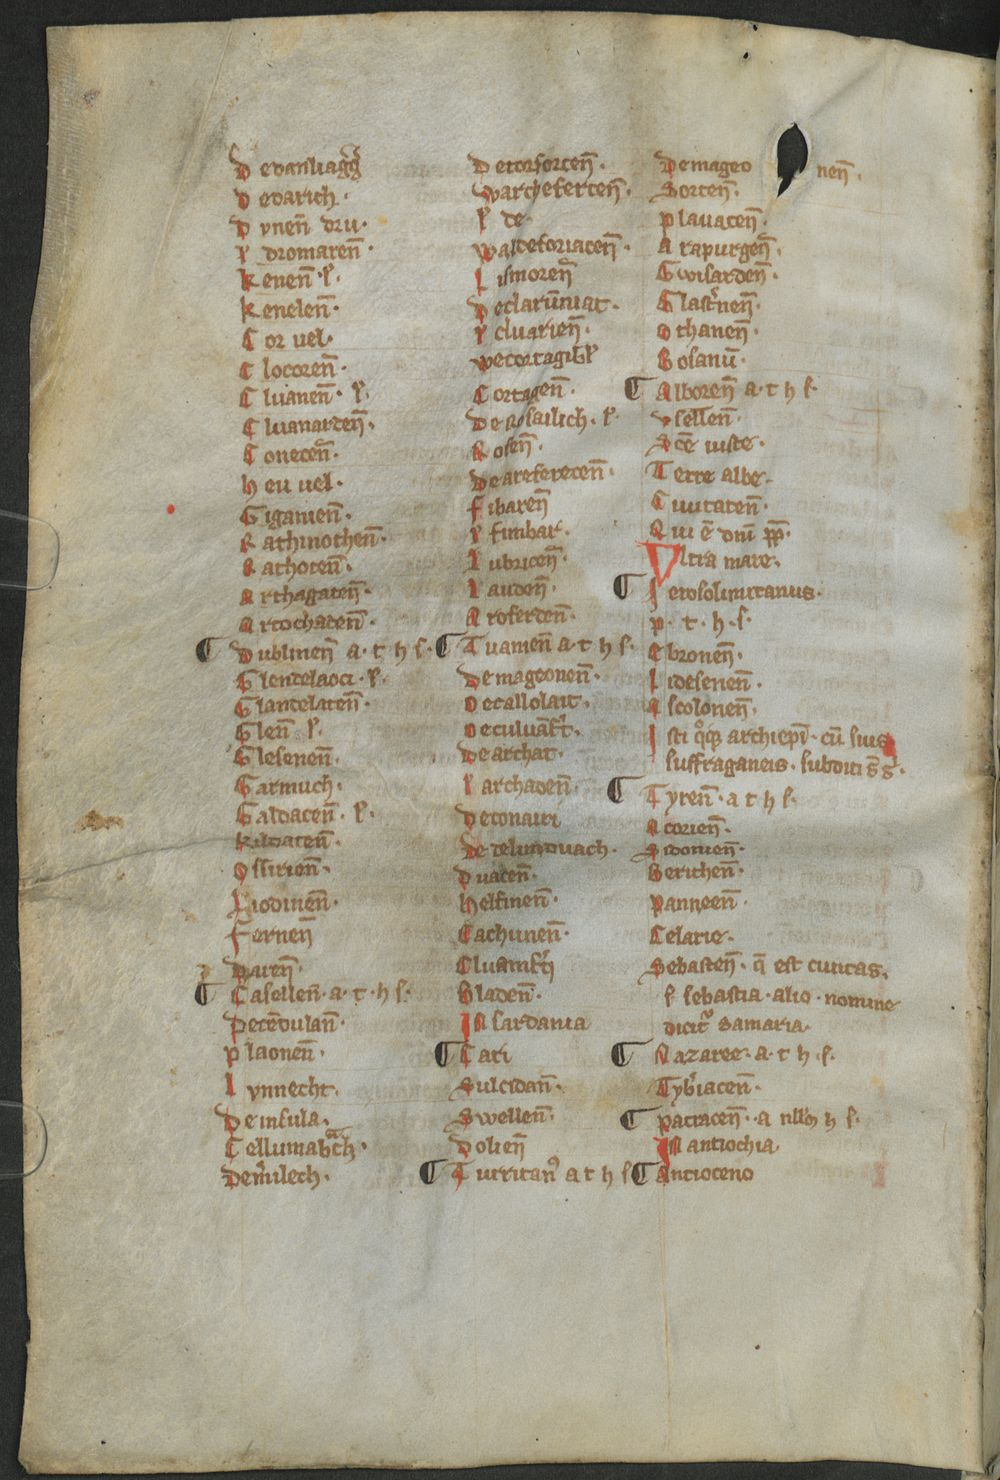 Dedanliagg̃
Dedarich.
Dynen̄ dru.
ł dromaren̄.
Kenen̄. ł.
Kenelen̄.
Cor vel.
Clocoren̄.
Cluanen̄. ł.
Cluanarden̄.
Conecen̄.
Heu vel.
Giganien̄.
Rathinothen̄.
Rathoten̄.
Arthagaten̄.
Artochaten̄.
¶ Dublinen̄ a. t h s.
Glendelaoci. ł.
Glandelaten̄.
Glen̄ ł.
Glesenen̄.
Garmuch.
Galdacen̄. ł.
Kildaren̄.
Ossirien̄.
Liodinen̄.
Fernen̄
Daren̄.
¶ Casellen̄. a. t. h s.
Decendulan̄.
Plaonen̄.
Lynnecht.
De insula.
Cellumabrath.
Dem̃ilech.
Detorsorcen̄.
Warcheferten̄.
ł de.
Waldeforiacen̄.
Lismoren̄
Declarũmat.
ł cluarien̄.
Wecortagib̃ ł
Cortagen̄.
De rosailich. ł.
Rosen̄.
Deareferecen̄.
Fibaren̄
ł fimbar.
Lubricen̄.
Lauden̄.
Aroferten̄.
¶ Tuamen̄ a. t h s.
Demageonen̄.
Decallolait.
Deculuãt̃.
De archat.
Larchaden̄.
Deconairi
De telumduach.
Duacen̄.
Helfinen̄.
Cachunen̄.
Cluamf̃ti
Bladen̄.
In sardania
¶ Cari
Sulcidan̄.
Swellen̄.
Dolien̄
¶ Turritan̄ a t h s
Demageo nen̄.
Sorten̄.
Plauaten̄.
Arapurgen̄.
Gwisarden̄.
Glast̃nen̄.
Othanen̄.
Bosanū.
¶ Alboren̄ a. t h s.
Vsellen̄.
Sc̄e iuste.
Terre albe.
Ciuitaten̄.
Qui ē dn̄i pp̄.
Vltra mare.
¶ Ierosolimitanus.
p. t. h. s.
Ebronen̄.
Lidesenen̄.
Ascolonen̄.
Isti q̊q̃ archiepī. cū suis
suffraganeis. subditi s̄ s̄.
¶ Tyren̄. a t h s.
Acorien̄.
Sidonien̄.
Berithen̄.
Panneen̄.
Celarie.
Sebasten̄. q̄ est ciuitas.
s. sebastia. alio. nomine
dicit᷑ Samaria.
¶ Nazaree. a. t h. s.
Tyb̃iacen̄.
¶ Patracen̄. a nłłm h s.
In antiochia
¶ Antioceno